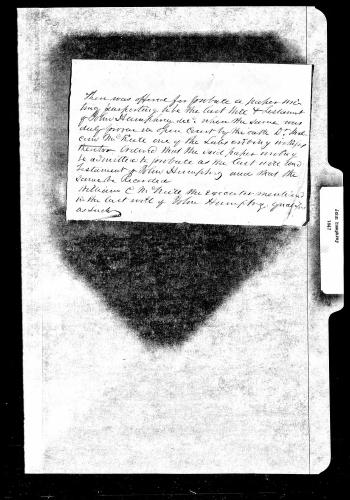 Then was offered for probate a paper wri-
ting purporting to be the last Will & testament
of John Humphrey decd. when the same was
duly proven in open Court by the oath
one of the Subscribing witness
thereto Ordered that the said paper writing
be admitted to probate as the last will and
testament of John Humphrey and that the
same be Recorded
William C McNeill the executor mentioned
in the last will of John Humphrey
as such
John Humphrey